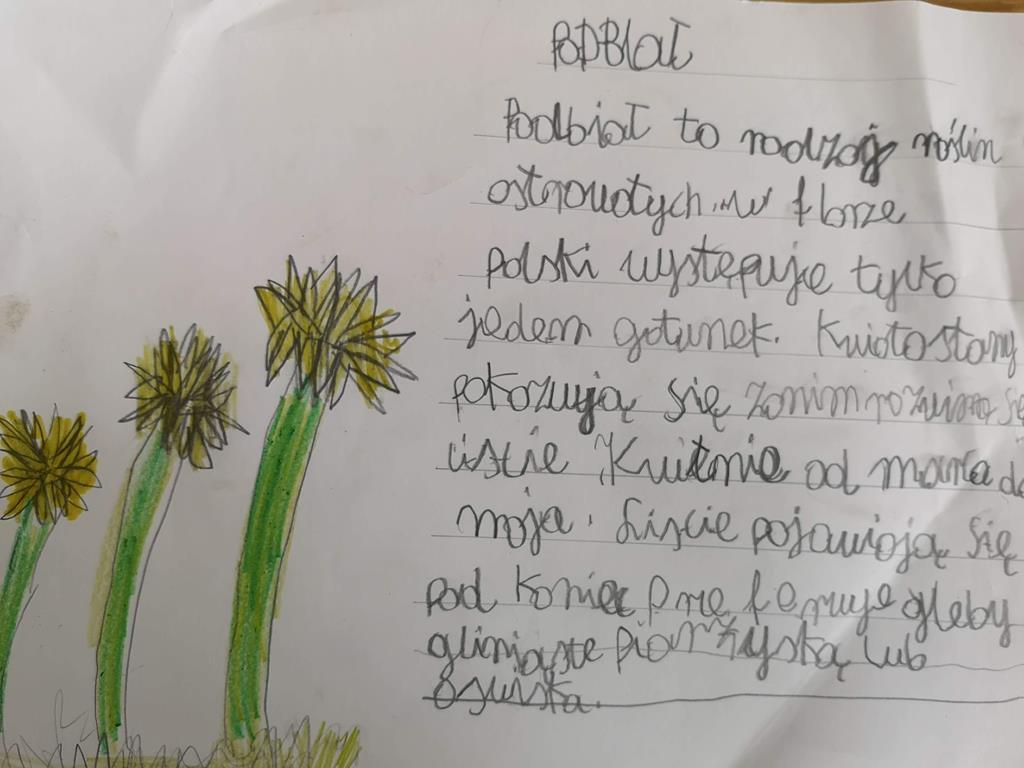 PODBIAŁ
Podbiał to rodzaj roślin
astrowatych. w florze
polski występuje tylko
jeden gatunek. Kwiatostany
pokazują się zanim rozwiną się
liście. Kwitnie od marca do
maja. Liście pojawiają się
pod koniec preferuje gleby
gliniaste piarżyska lub
osuwiska.